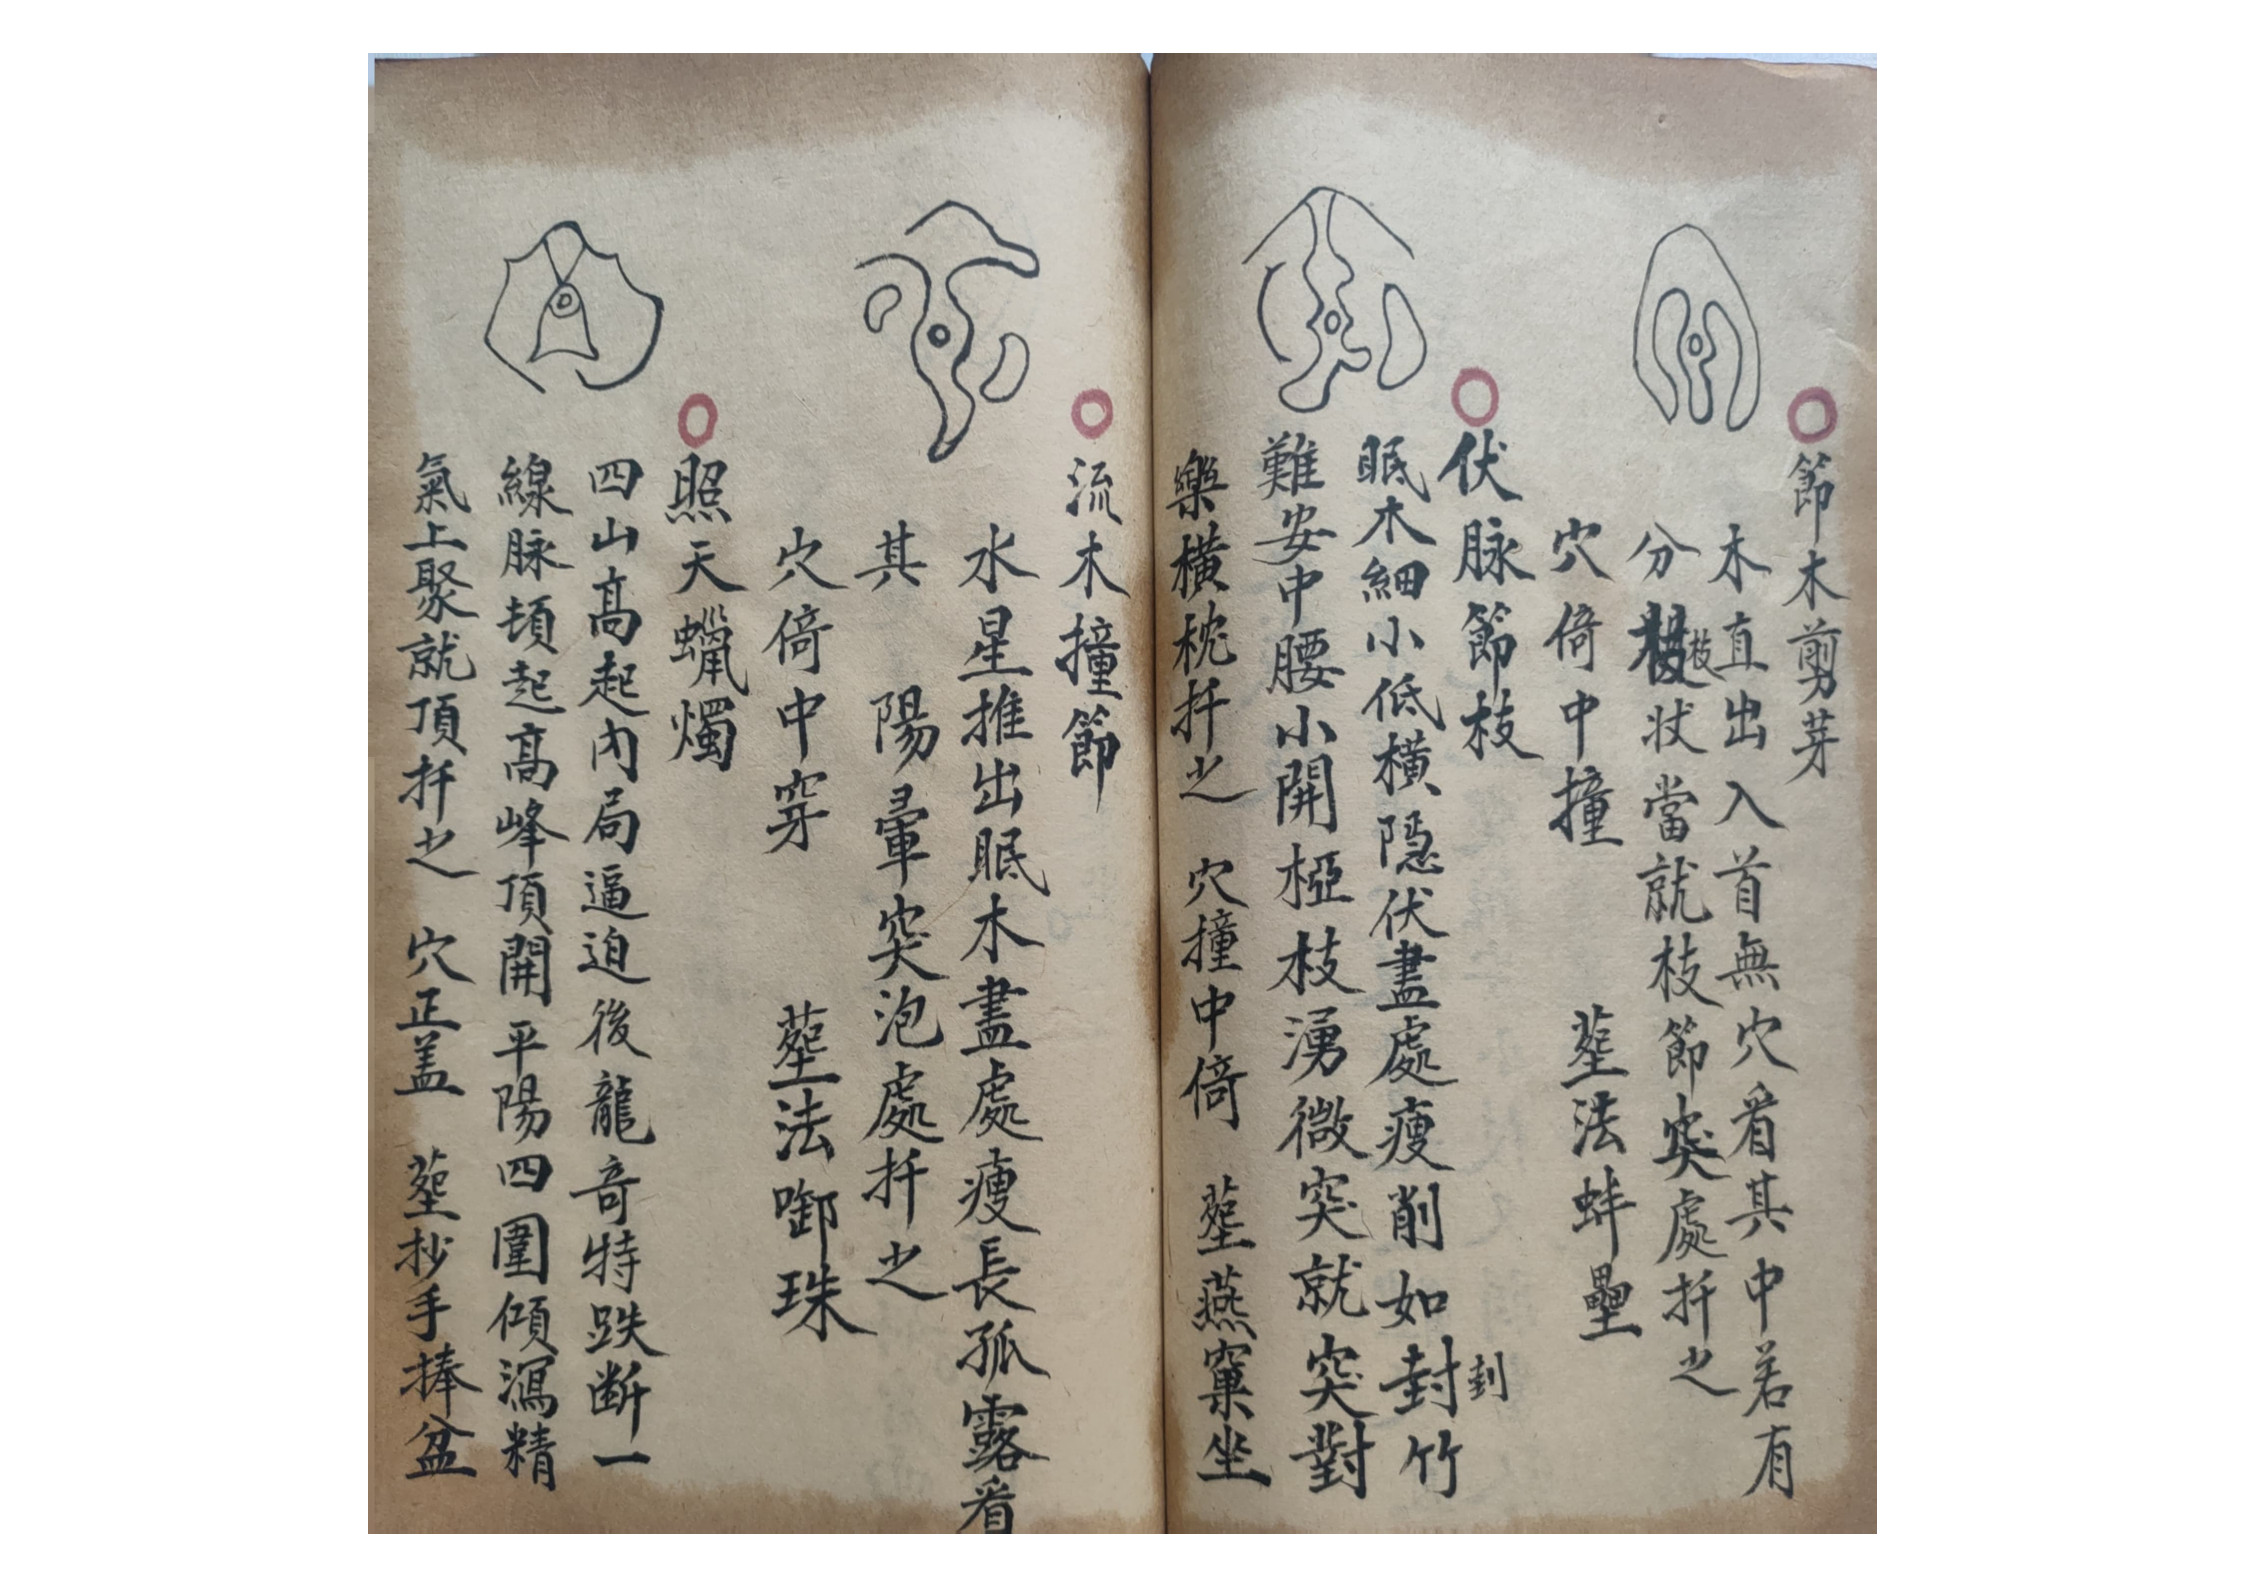 節木剪芽
木直出入首無穴看其中若有
分枝状當就枝節突處扦之
穴倚中撞 塟法蚌壘
伏脉節枝
眠木細小低橫隱伏盡處瘦削如封竹
封
難安中腰小開椏枝湧微突就突對
樂橫枕扦之 穴撞中倚 塟燕窠坐
流木撞節
水星推出眠木盡處瘦長孤露看
其 陽暈突泡處扦之
穴倚中穿 塟法啣珠
照天蠟燭
四山高起内局逼迫後龍奇特跌断一
線脉頓起高峰頂開平陽四圍傾瀉精
氣上聚就頂扦之 穴正盖 塟抄手捧盆